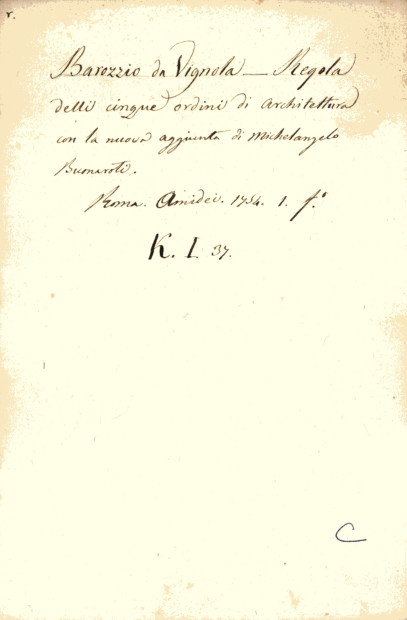 r.
Barozzio da Vignola — Regola
delli cinque ordini di architettura
con la nuova aggiunta di Michelangelo
Buonaroti.
Roma. Amidei. 1754. 1. f.º
K. I. 37.
C